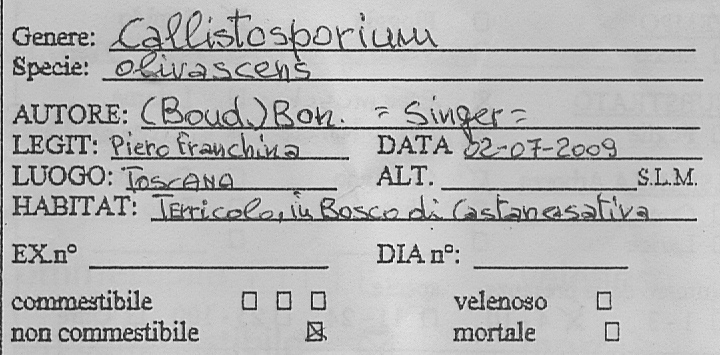 Genere: Callistosporium
Specie: olivascens
AUTORE: (Boud.) Bon. = Singer =
LEGIT: Piero Franchina DATA 02-07-2009
LUOGO: Toscana ALT. S.L.M.
HABITAT: Terricolo, in Bosco di Castanea sativa
EX.n° DIA n°:
commestibile □ □ □ velenoso □
non commestibile ☒ mortale □